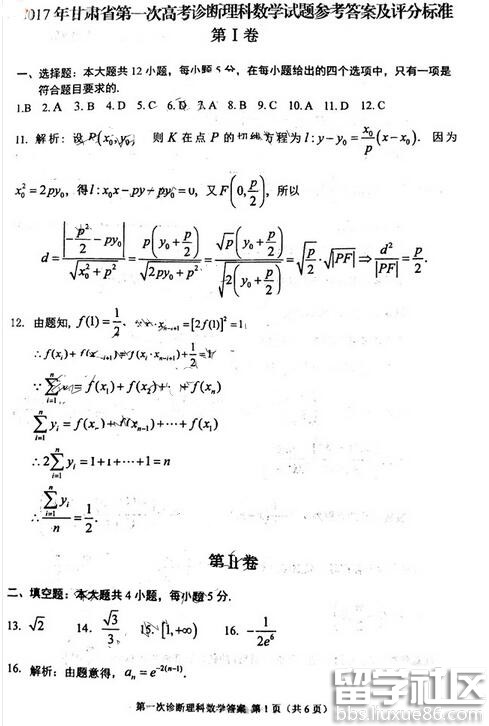 2017年甘肃省第一次高考诊断理科数学试题参考答案及评分标准
第Ⅰ卷
一、选择题:本大题共12小题,每小题5分,在每小题给出的四个选项中,只有一项是
符合题目要求的.
1.B 2.A 3.B 4.D 5.C 6.D 7.A 8.B 9.C 10.A 11.D 12.C
11. 解析:设P(x₀,y₀), 则K在点P的切线方程为l:y−y₀=x₀/p(x−x₀). 因为
x₀²=2py₀, 得l:x₀x−py−py₀=0, 又F(0,p/2), 所以
d=|−p²/2−py₀|/√(x₀²+p²)=p(y₀+p/2)/√(2py₀+p²)=√p(y₀+p/2)/√(2(y₀+p/2))=√(p/2)·√|PF|⇒d²/|PF|=p/2.
12. 由题知, f(1)=1/2, xₙ₋ᵢ₊₁=[2f(1)]²=1
∴f(xᵢ)+f(xₙ₋ᵢ₊₁)=f(xᵢ·xₙ₋ᵢ₊₁)+1/2=1
∵∑ᵢ₌₁ⁿ =f(x₁)+f(x₂)+⋯+f(xₙ)
∑ᵢ₌₁ⁿ yᵢ=f(xₙ)+f(xₙ₋₁)+⋯+f(x₁)
∴2∑ᵢ₌₁ⁿ yᵢ=1+1+⋯+1=n
∴∑ᵢ₌₁ⁿ yᵢ/n=1/2.
第Ⅱ卷
二、填空题:本大题共4小题,每小题5分.
13. √2 14. √3/3 15. [1,+∞) 16. −1/(2e⁶)
16. 解析:由题意得, aₙ=e⁻²⁽ⁿ⁻¹⁾.
第一次诊断理科数学答案 第1页(共6页)
留学社区
bbs.liuxue86.com